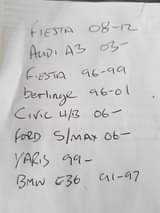 FIESTA 08-12
AUDI A3 03-
FIESTA 96-99
berlingo 96-01
CIVIC H/B 06-
FORD S/MAX 06-
YARIS 99-
BMW E36 91-97